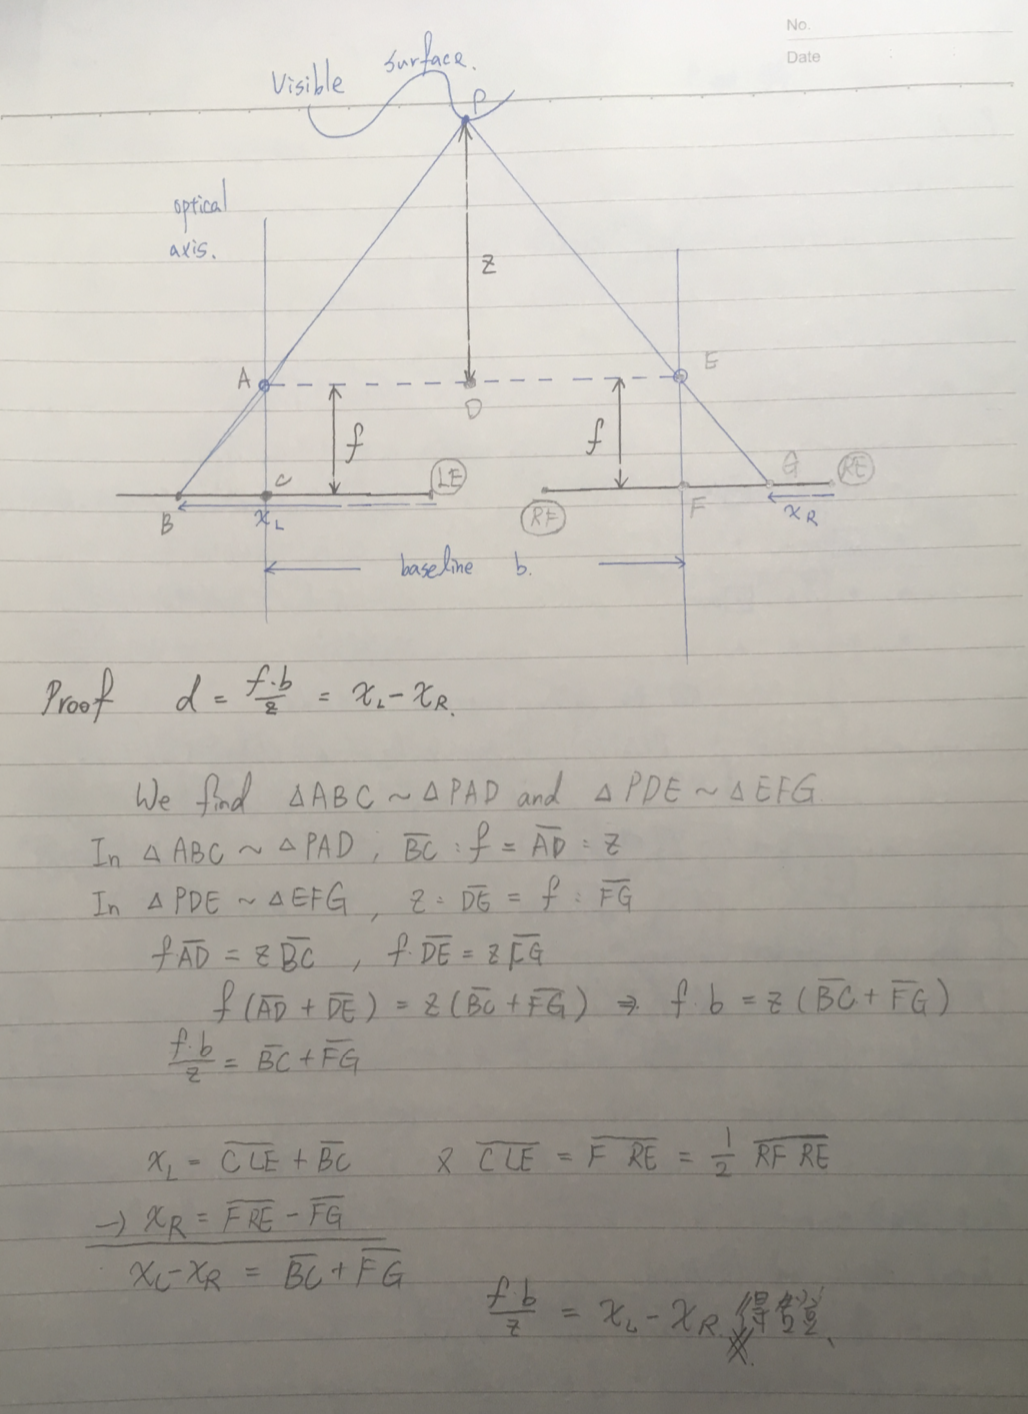 No.
Date
Visible surface.
P
optical
axis.
z
A
D
E
f
f
C
LE
G
RE
B
x_L
RF
F
x_R
baseline b.
Proof d = f·b/z = x_L - x_R.
We find △ABC ~ △PAD and △PDE ~ △EFG
In △ABC ~ △PAD, B̅C̅ : f = A̅D̅ : z
In △PDE ~ △EFG, z : D̅E̅ = f : F̅G̅
f A̅D̅ = z B̅C̅ , f·D̅E̅ = z F̅G̅
f (A̅D̅ + D̅E̅) = z (B̅C̅ + F̅G̅) ⇒ f·b = z (B̅C̅ + F̅G̅)
f·b/z = B̅C̅ + F̅G̅
x_L = C̅ L̅E̅ + B̅C̅ 又 C̅ L̅E̅ = F̅ R̅E̅ = 1/2 R̅F̅ R̅E̅
-) x_R = F̅ R̅E̅ - F̅G̅
x_L - x_R = B̅C̅ + F̅G̅
f·b/z = x_L - x_R. 得證